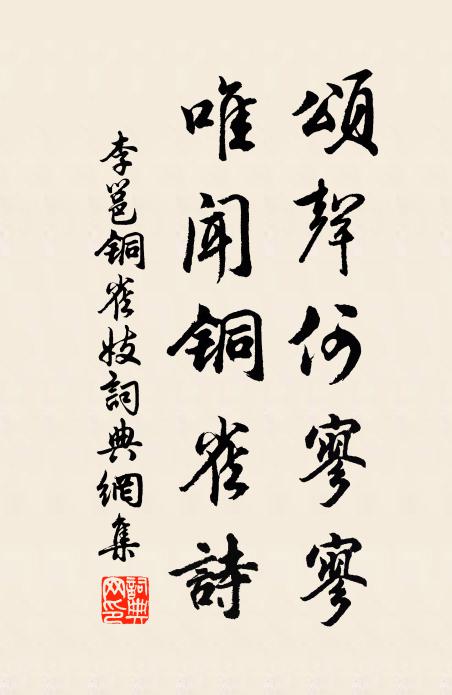 頌聲何寥寥
唯聞銅雀詩
李邕銅雀妓詞典網集
詞典網印